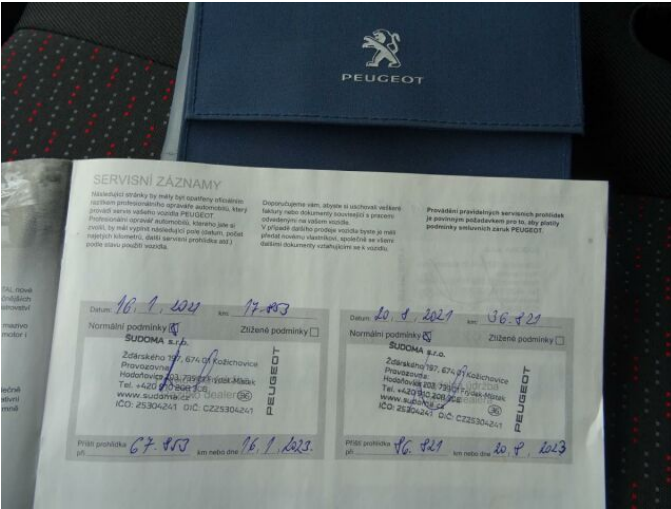 PEUGEOT
SERVISNÍ ZÁZNAMY
Následující stránky by měly být opatřeny oficiálním
razítkem profesionálního opraváře automobilů, který
provádí servis vašeho vozidla PEUGEOT
Profesionální opravář automobilů, kterého jste si
zvolili, by měl vyplnit následující pole (datum, počet
najetých kilometrů, další servisní prohlídka atd.)
podle stavu použití vozidla.
Doporučujeme vám, abyste si uschovali veškeré
faktury nebo dokumenty související s pracemi
odvedenými na vašem vozidle.
V případě dalšího prodeje vozidla byste je měli
předat novému vlastníkovi, společně se všemi
dalšími dokumenty vztahujícími se k vozidlu.
Provádění pravidelných servisních prohlídek
je povinným požadavkem pro to, aby platily
podmínky smluvních záruk PEUGEOT.
Datum 16. 1. 2021 km 17.853
Normální podmínky Ztížené podmínky
ŠUDOMA s.r.o.
Žďárského 197, 674 01 Kožichovice
Provozovna:
Hodoňovice 203, 739 01 Frýdek-Místek
Tel. +420 910 208 306
www.sudoma.cz
IČO: 25304241 DIČ: CZ25304241
PEUGEOT
Příští prohlídka
při 67.853 km nebo dne 16. 1. 2023.
Datum 20. 8. 2021 km 36.821
Normální podmínky Ztížené podmínky
ŠUDOMA s.r.o.
Žďárského 197, 674 01 Kožichovice
Provozovna:
Hodoňovice 203, 739 01 Frýdek-Místek
Tel. +420 910 208 306
www.sudoma.cz
IČO: 25304241 DIČ: CZ25304241
PEUGEOT
Příští prohlídka
při 86.821 km nebo dne 20. 8. 2023